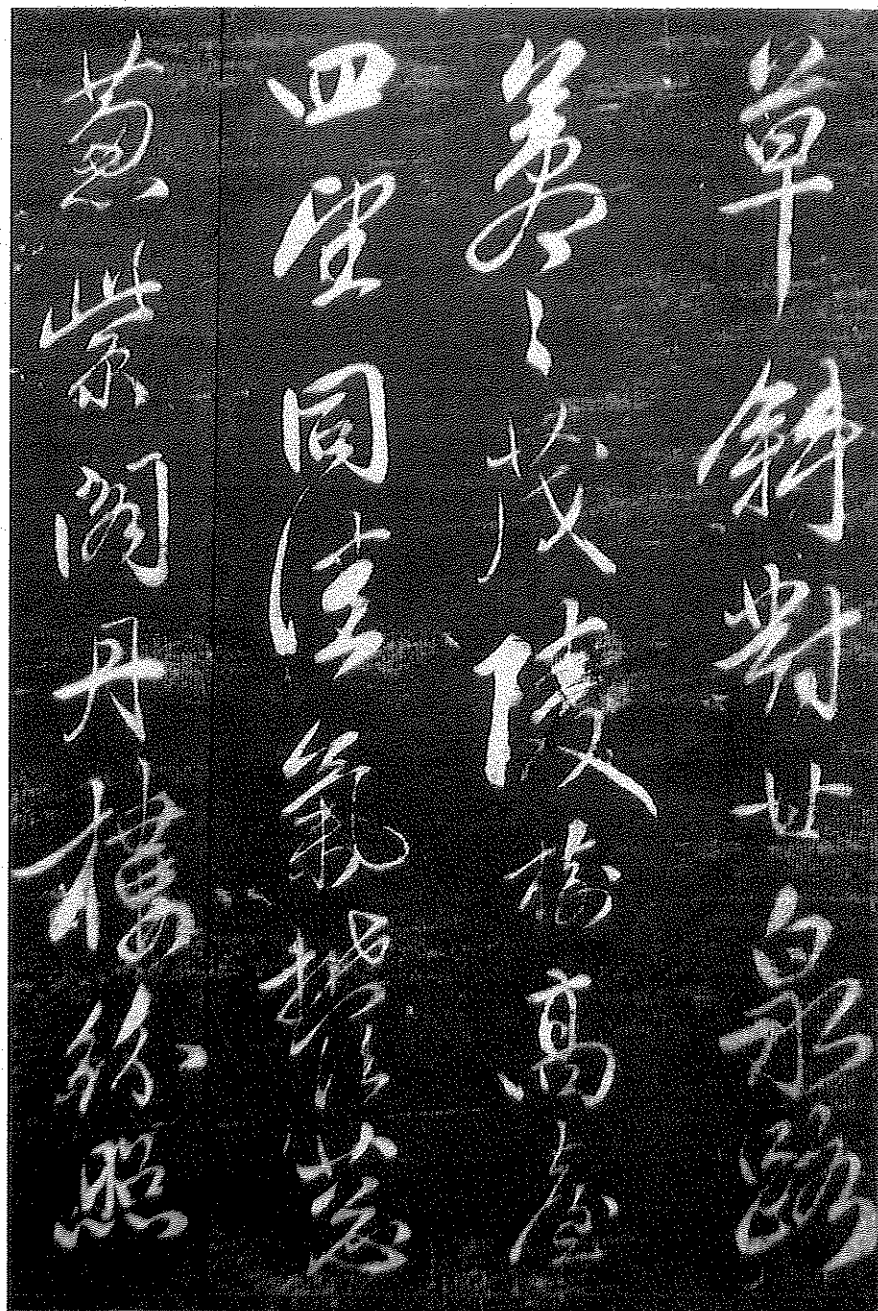 草斜對甘泉路
蒼〻茂陵樹高臺
四望同佳氣鬱葱
葱紫閣丹樓紛照